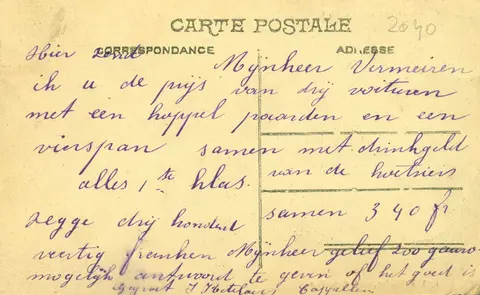 CARTE POSTALE
2040
CORRESPONDANCE
ADRESSE
Hier zend Mijnheer Vermeiren
ik u de prijs van drij voituren
met een koppel paarden en een
vierspan samen met drinkgeld
alles 1ste klas. van de koetsiers
zegge drij honderd samen 340 fr
veertig franken Mijnheer gelief zoo gauw
mogelijk antwoord te geven of het goed is
Gegroet J Cappellen